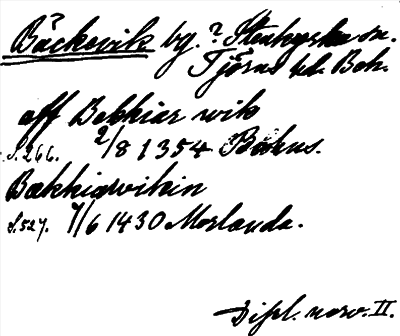 Bäckevik by. ? Stenkyrka sn.
Tjörns hd. Boh.
aff Bekkiar wik
S. 266. 2/8 1354 Bohus.
Bækkiarvikin
S. 527. 7/6 1430 Morlanda.
Dipl. norv. II.